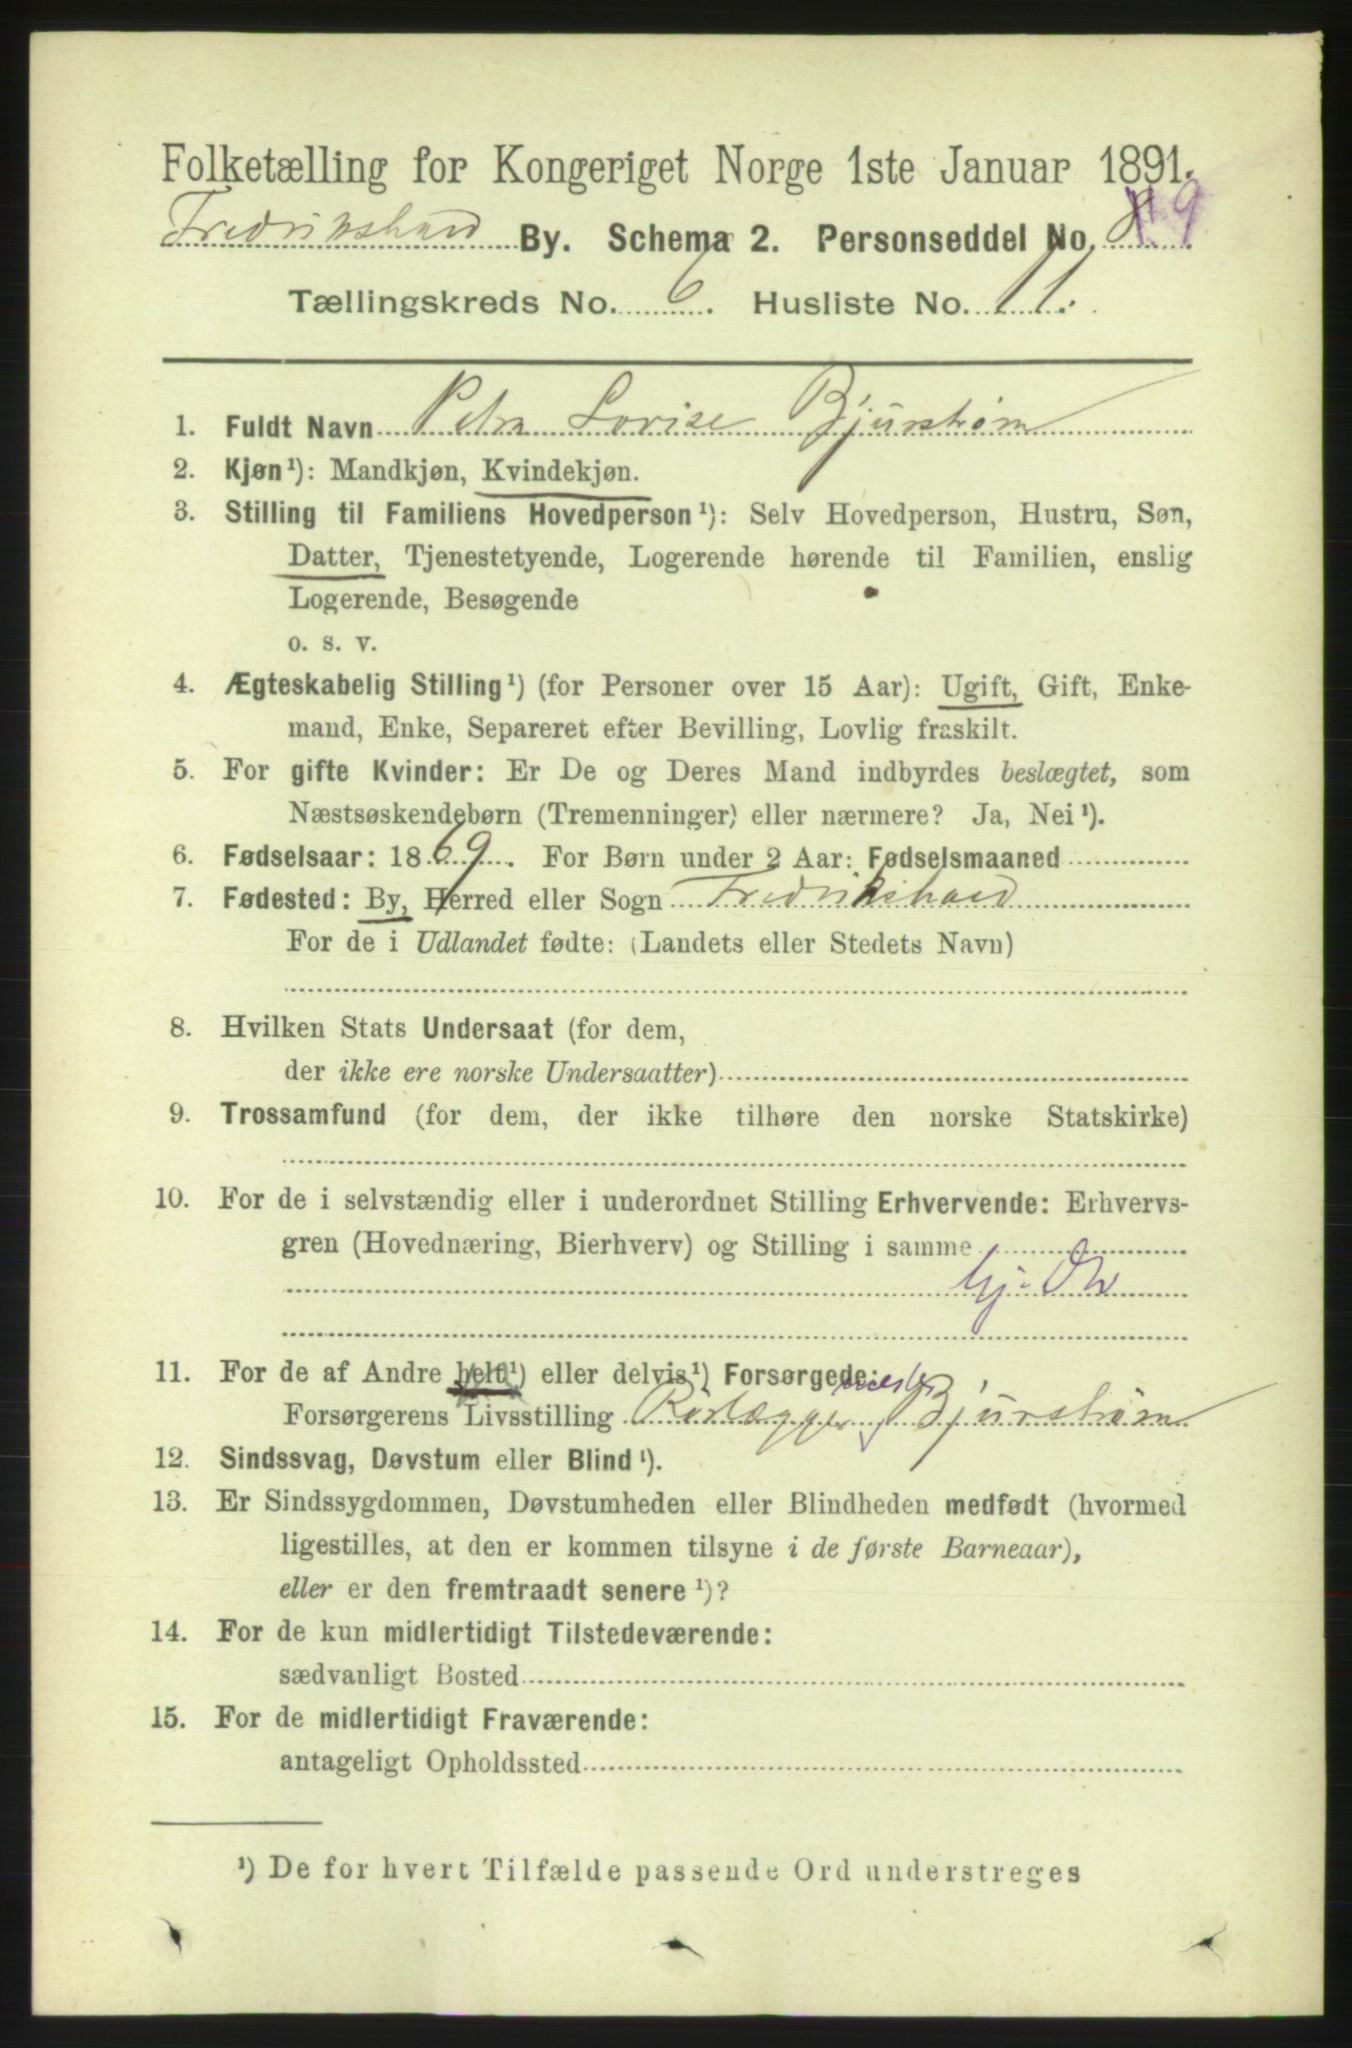 Folketælling for Kongeriget Norge 1ste Januar 1891.
Fredrikshald By. Schema 2. Personseddel No. 9
Tællingskreds No. 6. Husliste No. 11.
1. Fuldt Navn Petra Lovise Bjurstrøm
2. Kjøn¹): Mandkjøn, Kvindekjøn.
3. Stilling til Familiens Hovedperson¹): Selv Hovedperson, Hustru, Søn,
Datter, Tjenestetyende, Logerende hørende til Familien, enslig
Logerende, Besøgende
o. s. v.
4. Ægteskabelig Stilling¹) (for Personer over 15 Aar): Ugift, Gift, Enke-
mand, Enke, Separeret efter Bevilling, Lovlig fraskilt.
5. For gifte Kvinder: Er De og Deres Mand indbyrdes beslægtet, som
Næstsøskendebørn (Tremenninger) eller nærmere? Ja, Nei¹).
6. Fødselsaar: 1869. For Børn under 2 Aar: Fødselsmaaned
7. Fødested: By, Herred eller Sogn Fredrikshald
For de i Udlandet fødte: (Landets eller Stedets Navn)
8. Hvilken Stats Undersaat (for dem,
der ikke ere norske Undersaatter)
9. Trossamfund (for dem, der ikke tilhøre den norske Statskirke)
10. For de i selvstændig eller i underordnet Stilling Erhvervende: Erhvervs-
gren (Hovednæring, Bierhverv) og Stilling i samme
11. For de af Andre helt¹) eller delvis¹) Forsørgede:
Forsørgerens Livsstilling Rørlæggermester Bjurstrøm
12. Sindssvag, Døvstum eller Blind¹).
13. Er Sindssygdommen, Døvstumheden eller Blindheden medfødt (hvormed
ligestilles, at den er kommen tilsyne i de første Barneaar),
eller er den fremtraadt senere¹)?
14. For de kun midlertidigt Tilstedeværende:
sædvanligt Bosted
15. For de midlertidigt Fraværende:
antageligt Opholdssted
¹) De for hvert Tilfælde passende Ord understreges